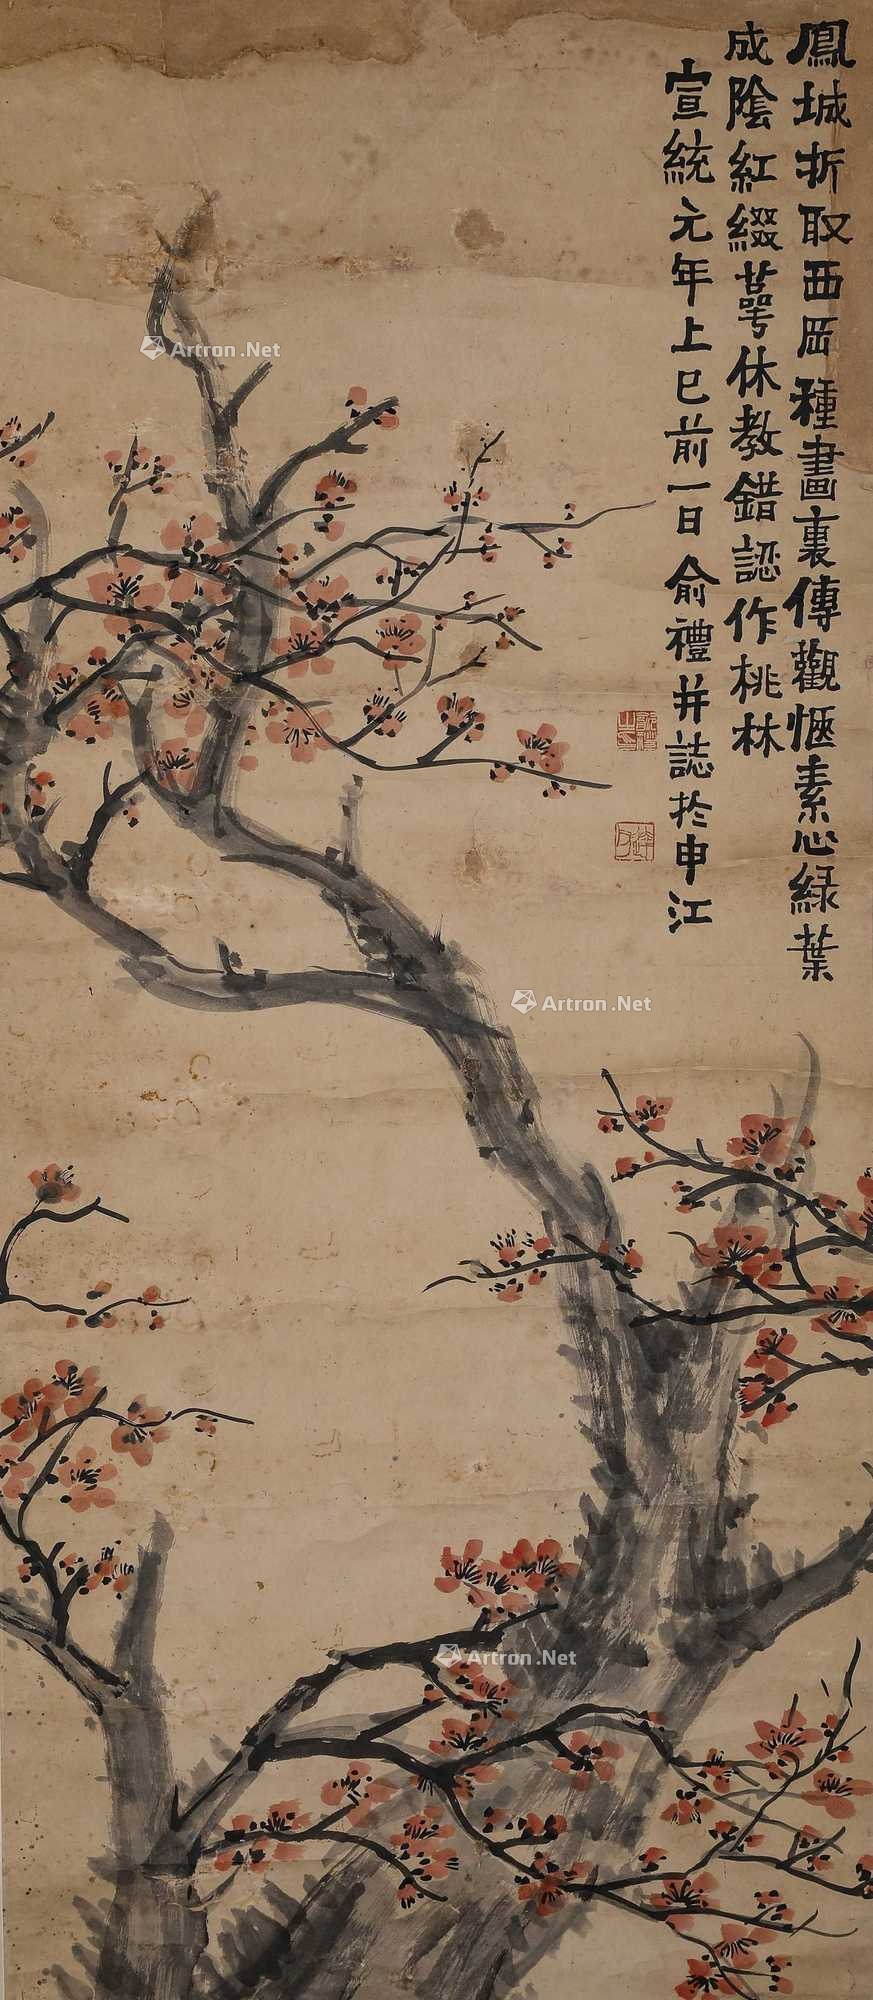 鳳城折取西岡種畫裏傳觀愜素心綠葉
成陰紅綴萼休教錯認作桃林
宣統元年上巳前一日俞禮并誌於申江
Artron.Net
Artron.Net
Artron.Net